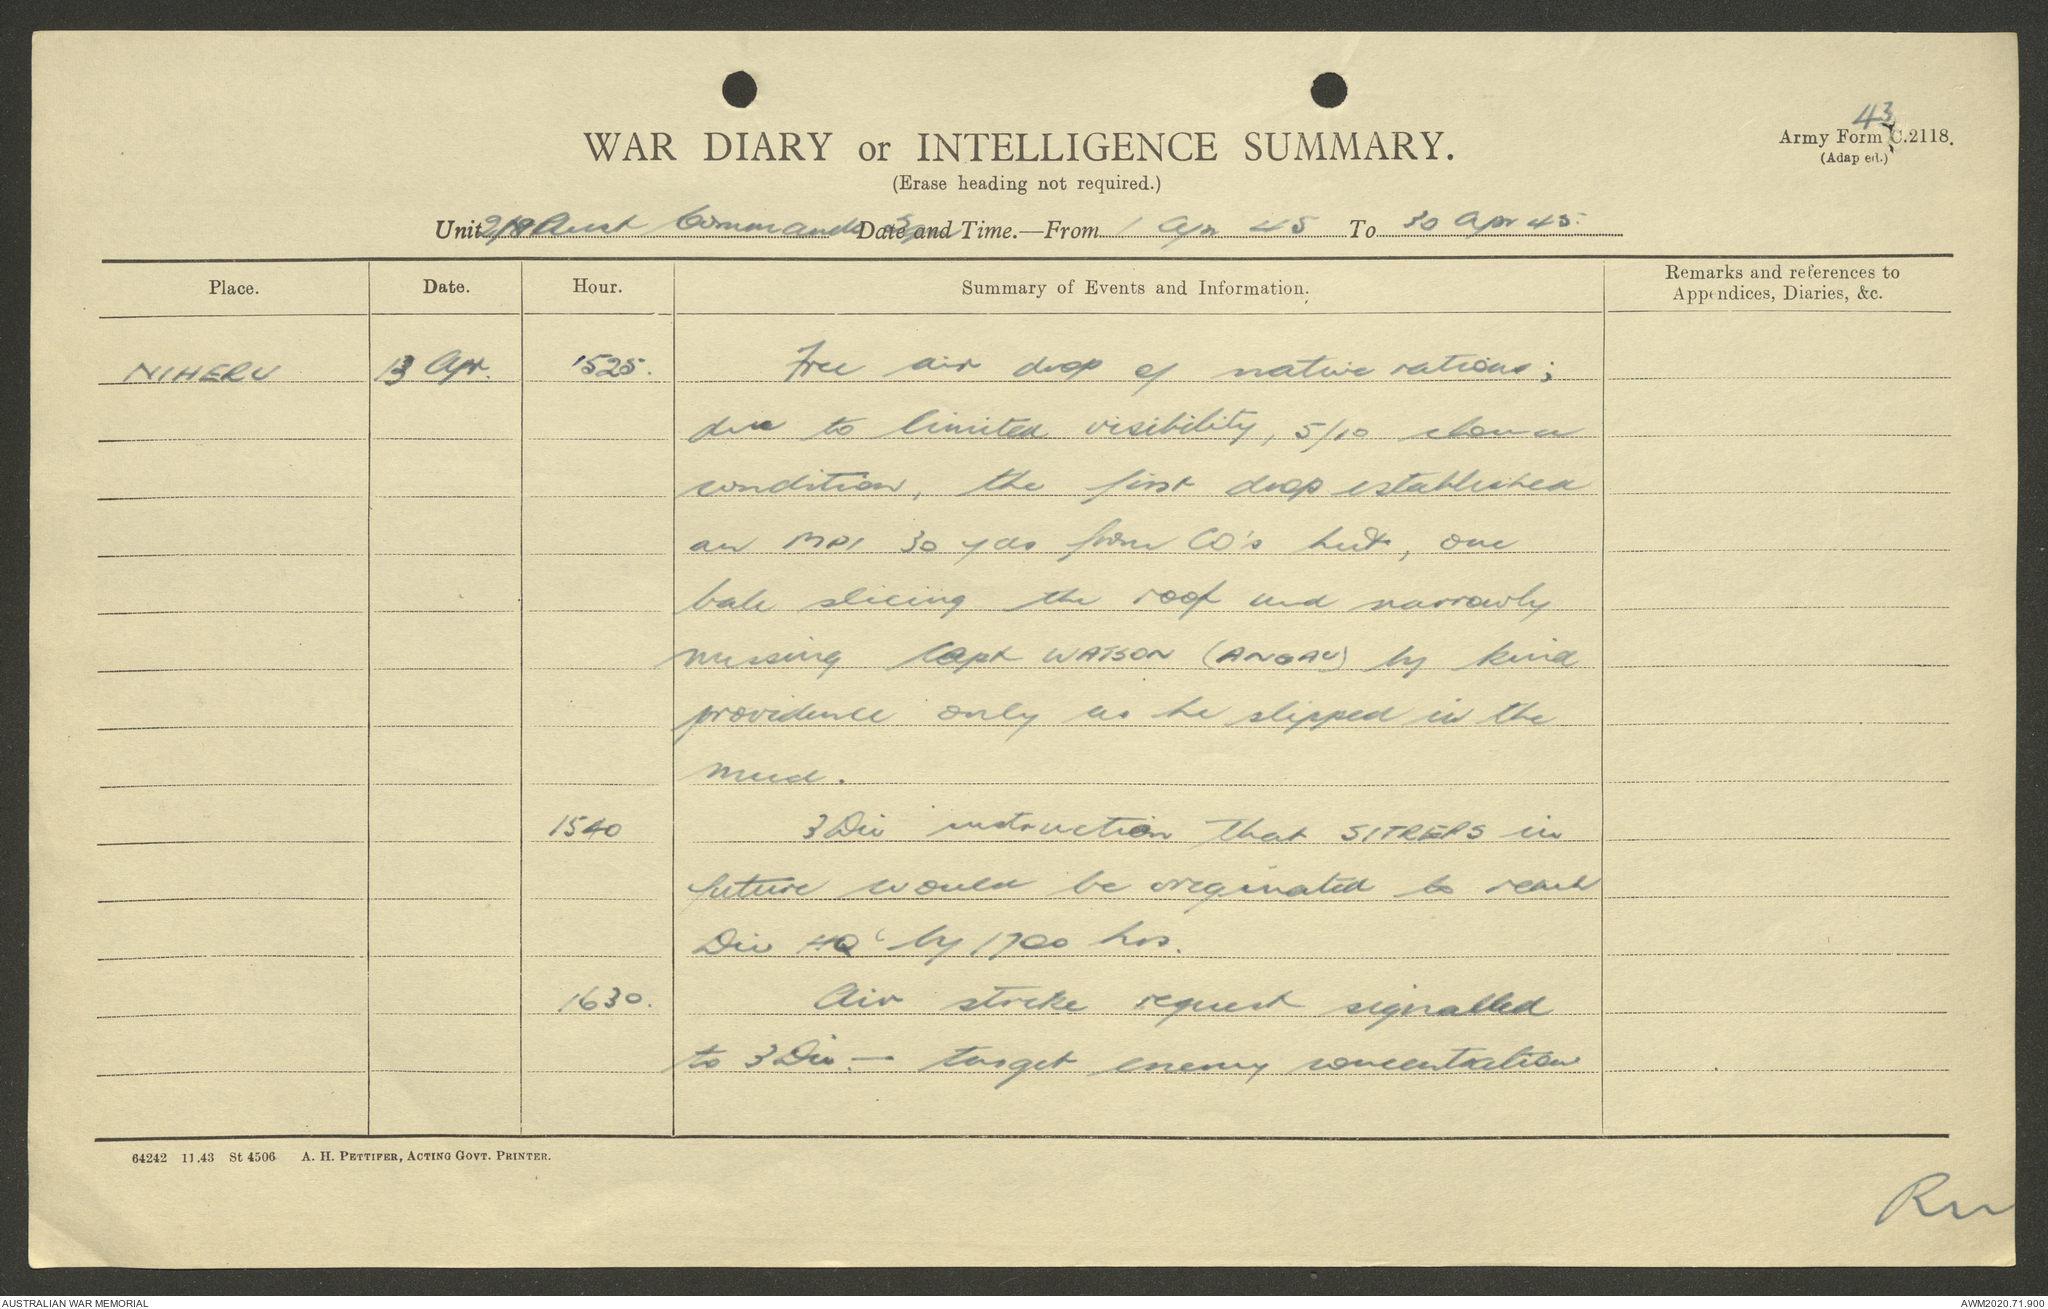 43
Army Form C.2118.
(Adap ed.)
WAR DIARY or INTELLIGENCE SUMMARY.
(Erase heading not required.)
Unit 2/8 Aust Commando Sqn Date and Time.—From 1 Apr 45 To 30 Apr 45.
Place. Date. Hour. Summary of Events and Information. Remarks and references to Appendices, Diaries, &c.
NIHERU 13 Apr. 1525. Free air drop of native rations;
due to limited visibility, 5/10 cloud
condition, the first drop established
an MPI 30 yds from CO's hut, one
bale slicing the roof and narrowly
missing Capt WATSON (ANGAU) by kind
providence only as he slipped in the
mud.
1540 3 Div instruction that SITREPS in
future would be originated to reach
Div HQ by 1700 hrs.
1630. Air strike request signalled
to 3 Div. — target enemy concentration
64242 11.43 St 4506 A. H. PETTIFER, ACTING GOVT. PRINTER.
AUSTRALIAN WAR MEMORIAL
AWM2020.71.900